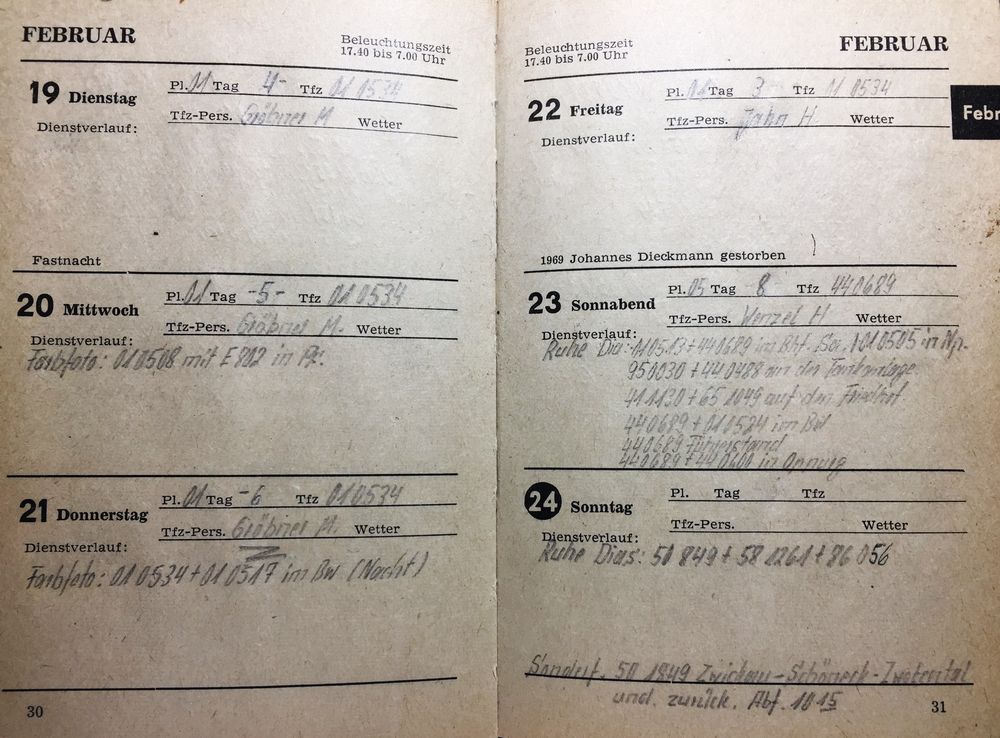 FEBRUAR
Beleuchtungszeit
17.40 bis 7.00 Uhr
19 Dienstag
Pl. 01 Tag 4- Tfz 01 0534
Tfz-Pers. Gräbner M Wetter
Dienstverlauf:
Fastnacht
20 Mittwoch
Pl. 01 Tag -5- Tfz 01 0534
Tfz-Pers. Gräbner M. Wetter
Dienstverlauf:
Farbfoto: 01 0508 mit E 802 in
21 Donnerstag
Pl. 01 Tag -6 Tfz 01 0534
Tfz-Pers. Gräbner M. Wetter
Dienstverlauf:
Farbfoto: 01 0534 + 01 0517 im Bw (Nacht)
30
Beleuchtungszeit
17.40 bis 7.00 Uhr
FEBRUAR
Febr
22 Freitag
Pl. 01 Tag 3 Tfz 01 0534
Tfz-Pers. Jahn H. Wetter
Dienstverlauf:
1969 Johannes Dieckmann gestorben
23 Sonnabend
Pl. 05 Tag 8 Tfz 44 0689
Tfz-Pers. Wenzel H Wetter
Dienstverlauf:
Ruhe Dia: 01 0513 + 44 0689 im Bhf. 01 0505 in
95 0030 + 44 0488 an der
41 1130 + 65 1049 auf den Friedhof
44 0689 + 01 0524 im Bw
44 0689 Führerstand
44 0689 + 44 0600 in Oppurg
24 Sonntag
Pl. Tag Tfz
Tfz-Pers. Wetter
Dienstverlauf:
Ruhe Dias: 50 849 + 58 1261 + 86 056
Sonderf. 50 1849 Zwickau - Schöneck - Zwotental
und. zurück. Abf. 10 15
31